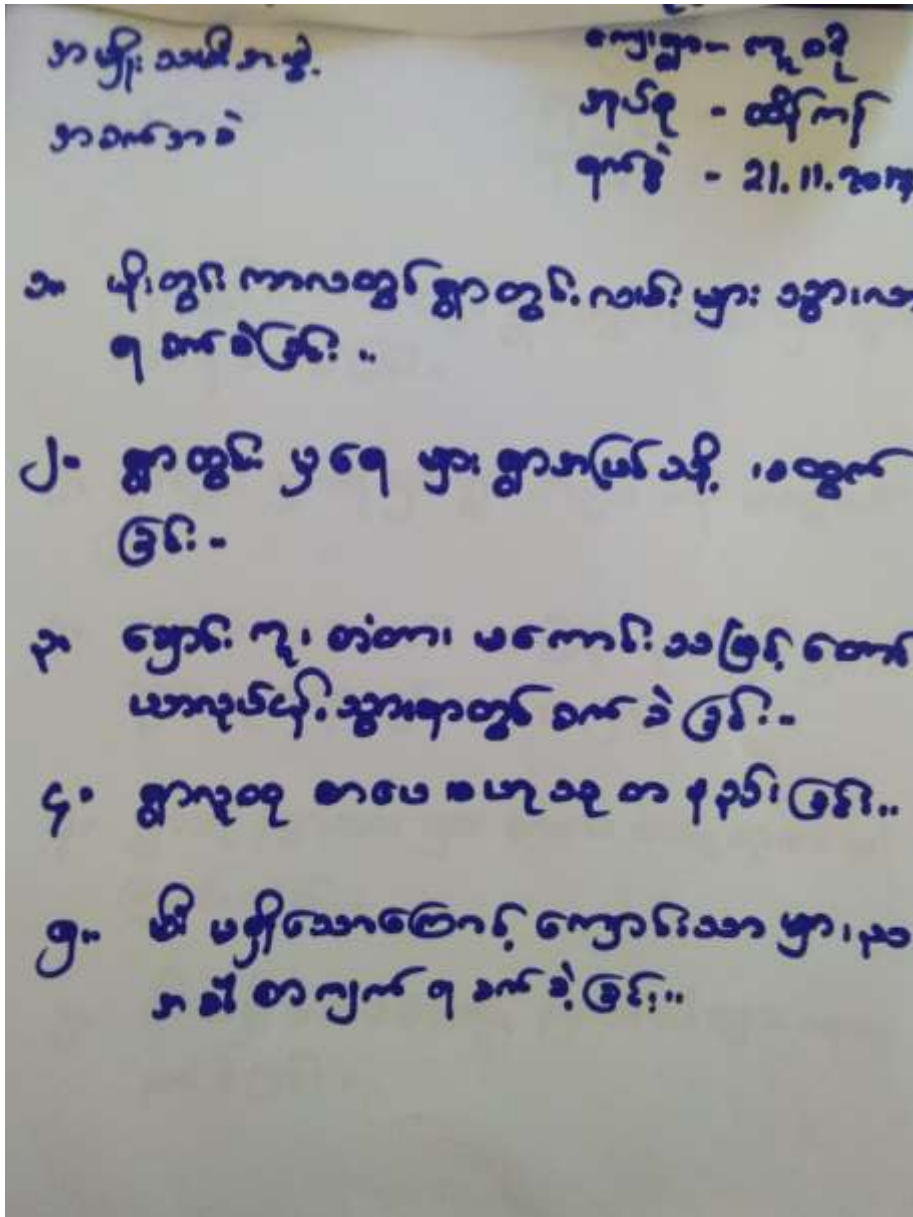 အမျိုးသမီးအဖွဲ့
အခက်အခဲ
ကျေးရွာ - ကူစခို
အုပ်စု - ထိန်ကန်
ရက်စွဲ - 21.11.၂၀၁၅
၁။ မိုးတွင်းကာလတွင် ရွာတွင်းလမ်းများ သွားလာ
ရခက်ခဲခြင်း။
၂။ ရွာတွင်းမှရေများ ရွာအပြင်သို့ မထွက်
ခြင်း။
၃။ ချောင်းကူးတံတား မကောင်းသဖြင့် တောင်
ယာလုပ်ငန်းသွားရာတွင် ခက်ခဲခြင်း။
၄။ ရွာလူထု စာပေဗဟုသုတ နည်းခြင်း။
၅။ မီးမရှိသောကြောင့် ကျောင်းသားများ ည
အခါ စာကျက်ရခက်ခဲခြင်း။